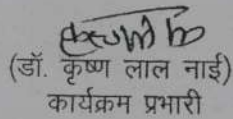 (डॉ. कृष्ण लाल नाई)
कार्यक्रम प्रभारी